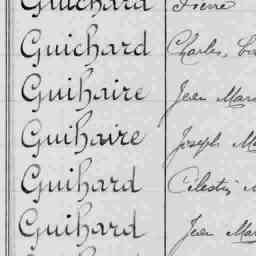 Guichard Pierre
Guichard Charles,
Guihaire Jean Mar
Guihaire Joseph Ma
Guihard Célestin
Guihard Jean Mar